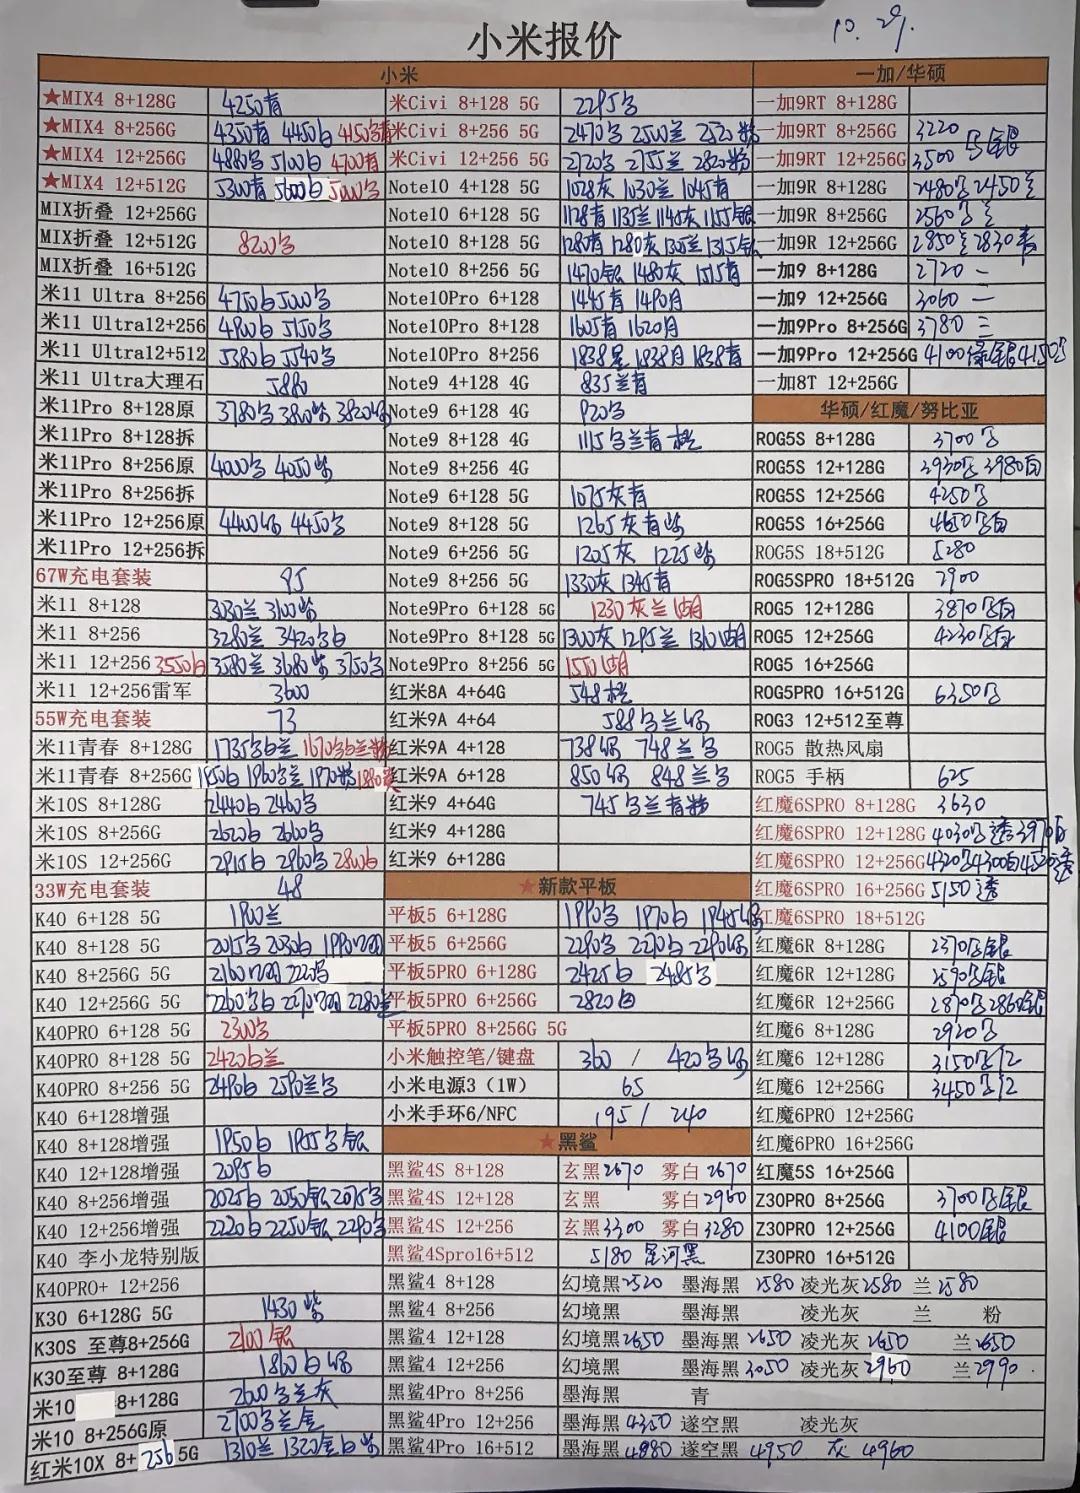 小米报价
10.29.
小米
一加/华硕
★MIX4 8+128G 4250青 米Civi 8+128 5G 2295 一加9RT 8+128G
★MIX4 8+256G 4350青 4450白 米Civi 8+256 5G 2470 2500兰 2520粉 一加9RT 8+256G 3220
★MIX4 12+256G 4880 5100白 4700青 米Civi 12+256 5G 2720 2755兰 2820粉 一加9RT 12+256G 3500
★MIX4 12+512G 5300青 5600白 Note10 4+128 5G 1028灰 1030兰 1045青 一加9R 8+128G 2480 2450
MIX折叠 12+256G Note10 6+128 5G 1128青 1135兰 1145灰 1155银 一加9R 8+256G 2560
MIX折叠 12+512G 8200 Note10 8+128 5G 1280青 1280灰 1305兰 1315银 一加9R 12+256G 2850 2830
MIX折叠 16+512G Note10 8+256 5G 1470银 1480灰 1515青 一加9 8+128G 2720 一
米11 Ultra 8+256 4750白 Note10Pro 6+128 1445青 1490月 一加9 12+256G 3060 一
米11 Ultra12+256 5150 Note10Pro 8+128 1605青 1620月 一加9Pro 8+256G 3780 三
米11 Ultra12+512 5380白 5540 Note10Pro 8+256 1838星 1838月 1838青 一加9Pro 12+256G 4100
米11 Ultra大理石 5880 Note9 4+128 4G 835兰青 一加8T 12+256G
米11Pro 8+128原 3780 3820绿 Note9 6+128 4G 920 华硕/红魔/努比亚
米11Pro 8+128拆 Note9 8+128 4G 1115 ROG5S 8+128G 3700
米11Pro 8+256原 4000 4050紫 Note9 8+256 4G ROG5S 12+128G 3930 3980白
米11Pro 8+256拆 Note9 6+128 5G 1075灰青 ROG5S 12+256G 4250
米11Pro 12+256原 4400绿 4450 Note9 8+128 5G 1265灰青紫 ROG5S 16+256G 4650
米11Pro 12+256拆 Note9 6+256 5G 1205灰 1225紫 ROG5S 18+512G 5280
67W充电套装 95 Note9 8+256 5G 1330灰 1345青 ROG5SPRO 18+512G 7900
米11 8+128 3030兰 3100紫 Note9Pro 6+128 5G 1230灰兰湖 ROG5 12+128G 3870
米11 8+256 3280兰 Note9Pro 8+128 5G 1300灰 1295兰 1310湖 ROG5 12+256G 4230
米11 12+256 3550白 3580兰 3680紫 3750 Note9Pro 8+256 5G 1550湖 ROG5 16+256G
米11 12+256雷军 3600 红米8A 4+64G 548 ROG5PRO 16+512G 6350
55W充电套装 73 红米9A 4+64 588 ROG3 12+512至尊
米11青春 8+128G 1735 红米9A 4+128 738绿 748兰 ROG5 散热风扇
米11青春 8+256G 1950白 1960 1970粉 红米9A 6+128 850绿 848兰 ROG5 手柄 625
米10S 8+128G 2440白 2460 红米9 4+64G 745 红魔6SPRO 8+128G 3630
米10S 8+256G 2620白 2660 红米9 4+128G 红魔6SPRO 12+128G 4030 透
米10S 12+256G 2915白 2960 2880白 红米9 6+128G 红魔6SPRO 12+256G 4320 4300白
33W充电套装 48 ★新款平板 红魔6SPRO 16+256G 5150透
K40 6+128 5G 兰 平板5 6+128G 1990 1970白 1945绿 红魔6SPRO 18+512G
K40 8+128 5G 2015 2030白 平板5 6+256G 2290 2270白 2290绿 红魔6R 8+128G 2370
K40 8+256G 5G 2160 2220 平板5PRO 6+128G 2425白 2485 红魔6R 12+128G 2590
K40 12+256G 5G 2260 2270 2280兰 平板5PRO 6+256G 2820白 红魔6R 12+256G 2870 2860银
K40PRO 6+128 5G 2300 平板5PRO 8+256G 5G 红魔6 8+128G 2920
K40PRO 8+128 5G 2420白兰 小米触控笔/键盘 360 / 420 红魔6 12+128G 3150
K40PRO 8+256 5G 2490白 2590兰 小米电源3（1W） 65 红魔6 12+256G 3450
K40 6+128增强 小米手环6/NFC 195 / 240 红魔6PRO 12+256G
K40 8+128增强 1950白 ★黑鲨 红魔6PRO 16+256G
K40 12+128增强 2095白 黑鲨4S 8+128 玄黑2670 雾白2670 红魔5S 16+256G
K40 8+256增强 2025白 2050银 2075 黑鲨4S 12+128 玄黑 雾白2960 Z30PRO 8+256G 3700
K40 12+256增强 2220白 2250银 2290 黑鲨4S 12+256 玄黑3300 雾白3280 Z30PRO 12+256G 4100
K40 李小龙特别版 黑鲨4Spro16+512 5180 星河黑 Z30PRO 16+512G
K40PRO+ 12+256 黑鲨4 8+128 幻境黑2520 墨海黑 2580 凌光灰2580 兰2580
K30 6+128G 5G 1430紫 黑鲨4 8+256 幻境黑 墨海黑 凌光灰 兰 粉
K30S 至尊8+256G 2100银 黑鲨4 12+128 幻境黑2650 墨海黑 2650 凌光灰2650 兰2650
K30至尊 8+128G 1860白绿 黑鲨4 12+256 幻境黑 墨海黑3050 凌光灰2960 兰2990
米10 8+128G 2600 黑鲨4Pro 8+256 墨海黑 青
米10 8+256G原 2700 黑鲨4Pro 12+256 墨海黑4350 遂空黑 凌光灰
红米10X 8+256 5G 1310兰 1320 黑鲨4Pro 16+512 墨海黑4880 遂空黑 4950 灰 4960